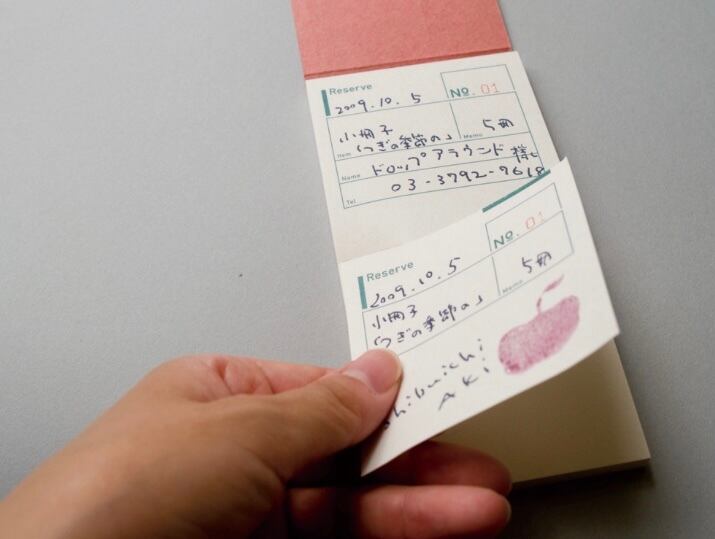 Reserve
2009.10.5
No. 01
小冊子
Item 「つぎの季節の」
Memo 5冊
Name ドロップアラウンド 様
Tel 03-3792-7618
Reserve
2009.10.5
No. 01
小冊子
「つぎの季節の」
Memo 5冊
AKi